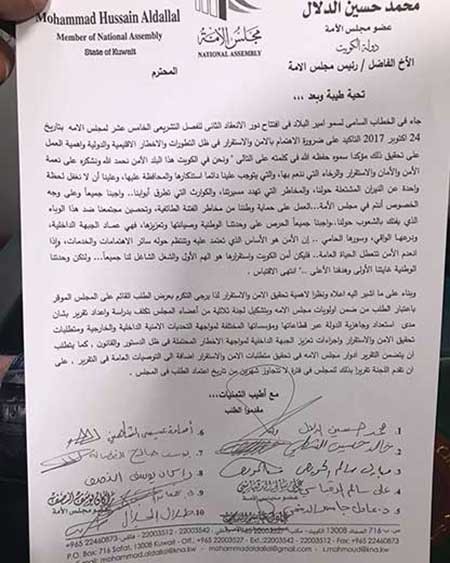 Mohammad Hussain Aldallal
Member of National Assembly
State of Kuwait
مجلس الأمة
NATIONAL ASSEMBLY
محمد حسين الدلال
عضو مجلس الأمة
دولة الكويت
الأخ الفاضل / رئيس مجلس الامة
المحترم
تحية طيبة وبعد ،،،
جاء في الخطاب السامي لسمو امير البلاد في افتتاح دور الانعقاد الثاني للفصل التشريعي الخامس عشر لمجلس الامه بتاريخ
24 اكتوبر 2017 التاكيد على ضرورة الاهتمام بالأمن والاستقرار في ظل التطورات والاخطار الاقليمية والدولية واهمية العمل
على تحقيق ذلك مؤكدا سموه حفظه الله في كلمته على التالي " ونحن في الكويت هذا البلد الآمن نحمد الله ونشكره على نعمة
الأمن والأمان والاستقرار والرخاء التي ننعم بها، والتي يتوجب علينا دائما استذكارها والمحافظة عليها، وعلينا أن لا نغفل لحظة
واحدة عن النيران المشتعلة حولنا، والمخاطر التي تهدد مسيرتنا، والكوارث التي تطرق أبوابنا.. واجبنا جميعاً وعلى وجه
الخصوص أنتم في مجلس الأمة...العمل على حماية وطننا من مخاطر الفتنة الطائفية، وتحصين مجتمعنا ضد هذا الوباء
الذي يفتك بالشعوب حولنا.. واجبنا جميعاً الحرص على وحدتنا الوطنية وصيانتها وتعزيزها، فهي عماد الجبهة الداخلية،
ودرعها الواقي، وسورها الحامي .. إن الأمن هو الأساس الذي تعتمد عليه وتنتظم حوله سائر الاهتمامات والخدمات، وإذا
انعدم الأمن تتعطل الحياة العامة...فليكن أمن الكويت واستقرارها هو الهم الأول والشغل الشاغل لنا جميعاً... ولتكن وحدتنا
الوطنية غايتنا الأولى وهدفنا الأعلى .." انتهى الاقتباس .
وبناء على ما اشير اليه اعلاه ونظرا لاهمية تحقيق الامن والاستقرار لذا يرجى التكرم بعرض الطلب القائم على المجلس الموقر
باعتبار الطلب من ضمن اولويات مجلس الامه وبتشكيل لجنة ثلاثية من أعضاء المجلس تكلف بدراسة واعداد تقرير بشان
مدى استعداد وجاهزية الدولة عبر قطاعاتها ومؤسساتها المختلفة لمواجهة التحديات الامنية الداخلية والخارجية ومتطلبات
تحقيق الامن والاستقرار واجراءات تعزيز الجبهة الداخلية لمواجهة الاخطار المحتملة في ظل الدستور والقانون، كما يتطلب
ان يتضمن التقرير ادوار مجلس الامه في تحقيق متطلبات الامن والاستقرار اضافة الى التوصيات العامة في التقرير ، على
ان تقدم اللجنة تقريرا بذلك للمجلس في فترة لا تتجاوز شهرين من تاريخ اعتماد الطلب في المجلس .
مع أطيب التمنيات،،،
مقدموا الطلب
1. محمد حسين الدلال
2. خالد حسين الشطي
3. مبارك سالم الحريص
4. علي سالم الدقباسي
5. د. عادل جاسم الدمخي
6. أسامة عيسى الشاهين
7. يوسف صالح الفضالة
8. راكان يوسف النصف
9.
10. طلال الجلال
+965 22460873
P.O. Box: 716 Safat, 13008 Kuwait - Off.: 22003542 - 22003541 - Fax: +965 22460873